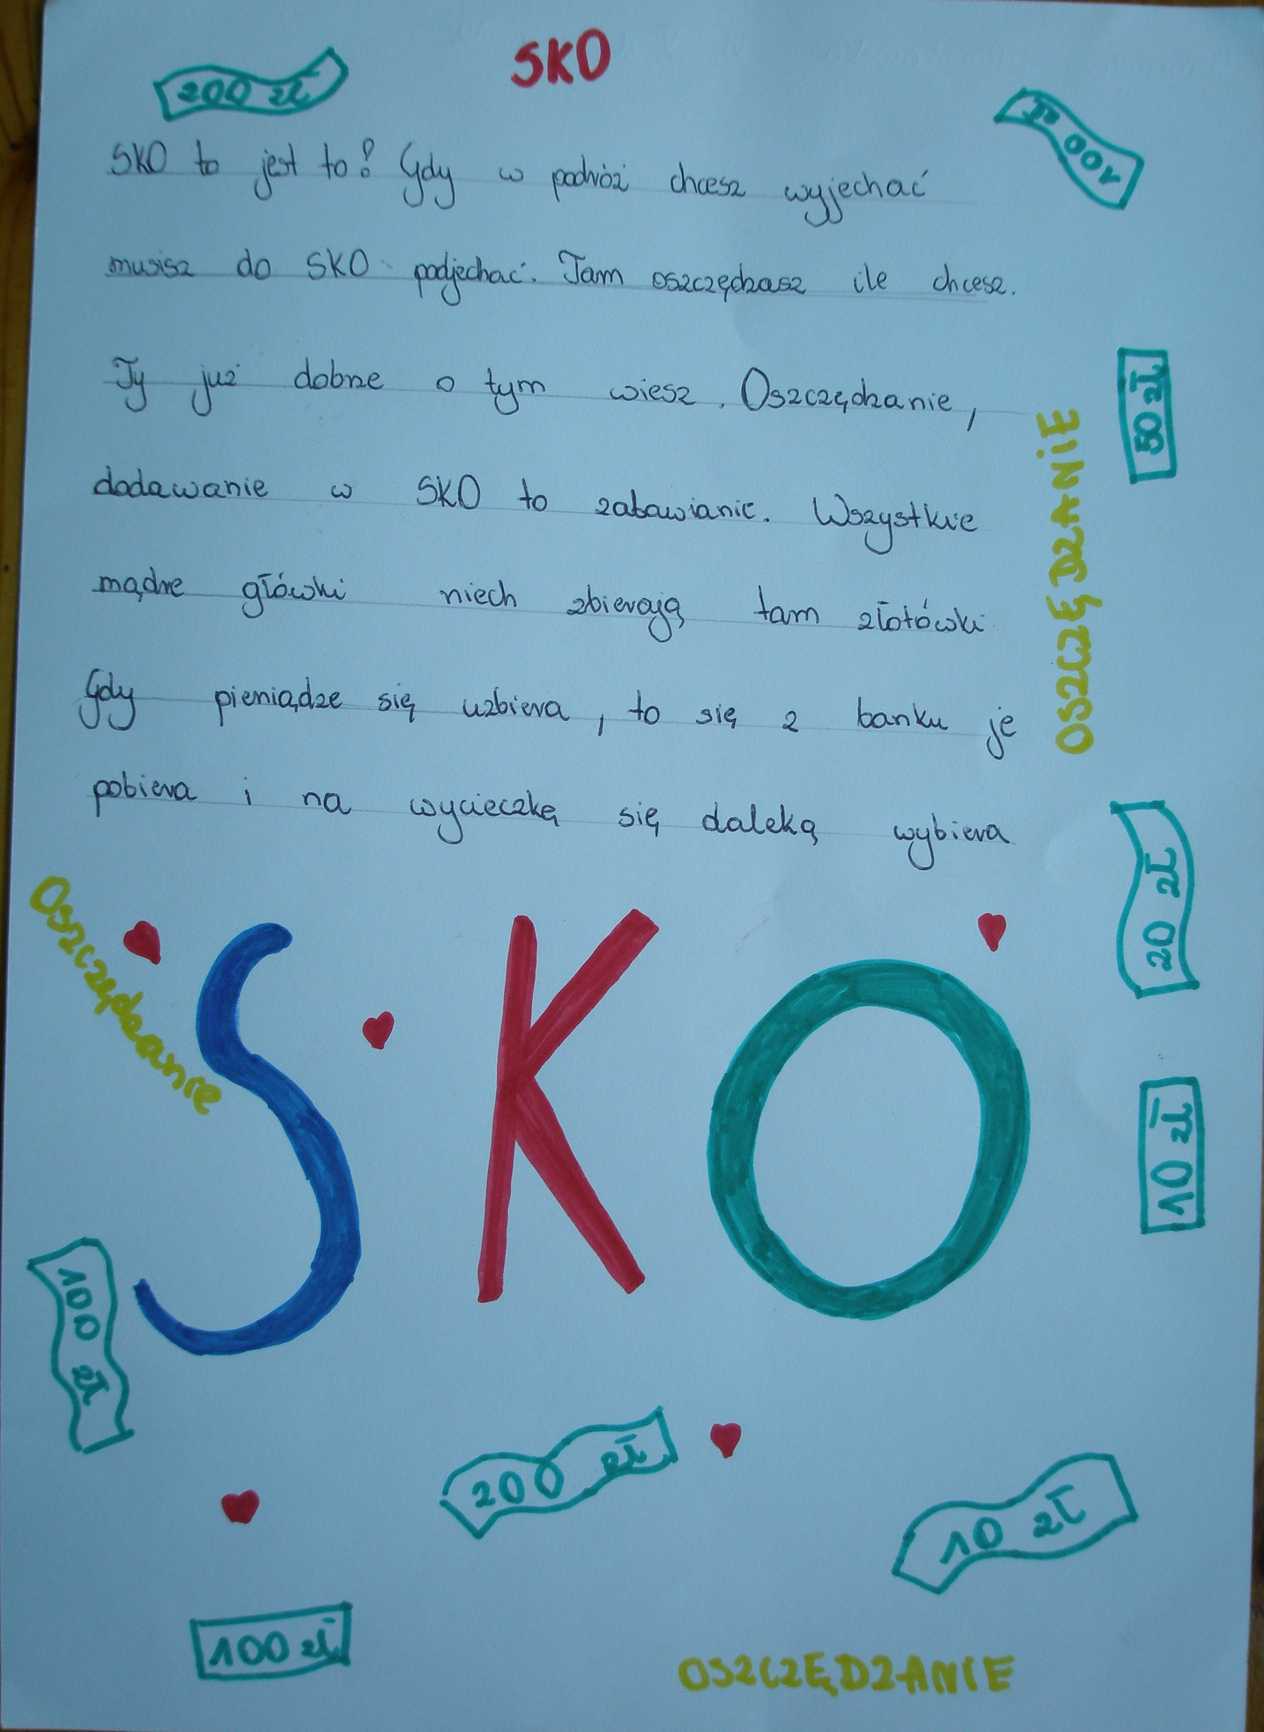 SKO
200 zł
100 zł
SKO to jest to? Gdy w podróż chcesz wyjechać
musisz do SKO podjechać. Tam oszczędzasz ile chcesz.
Ty już dobrze o tym wiesz. Oszczędzanie,
50 zł
OSZCZĘDZANIE
dodawanie w SKO to zabawianie. Wszystkie
mądre główki niech zbierają tam złotówki
Gdy pieniądze się uzbiera, to się z banku je
pobiera i na wycieczkę się daleką wybiera
20 zł
Oszczędzanie
SKO
10 zł
100 zł
200 zł
10 zł
100 zł
OSZCZĘDZANIE